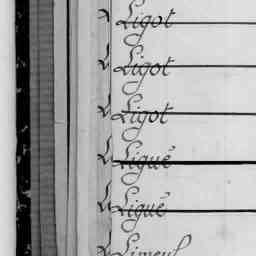 Ligot
Ligot
Ligot
Ligué
Ligué